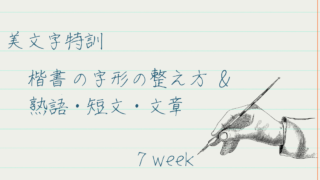 美文字特訓
楷書の字形の整え方 &
熟語・短文・文章
7 week